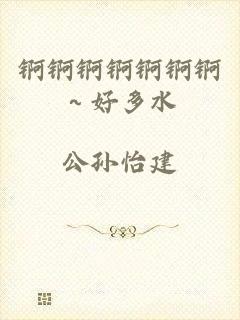 锕锕锕锕锕锕锕
~好多水
公孙怡建